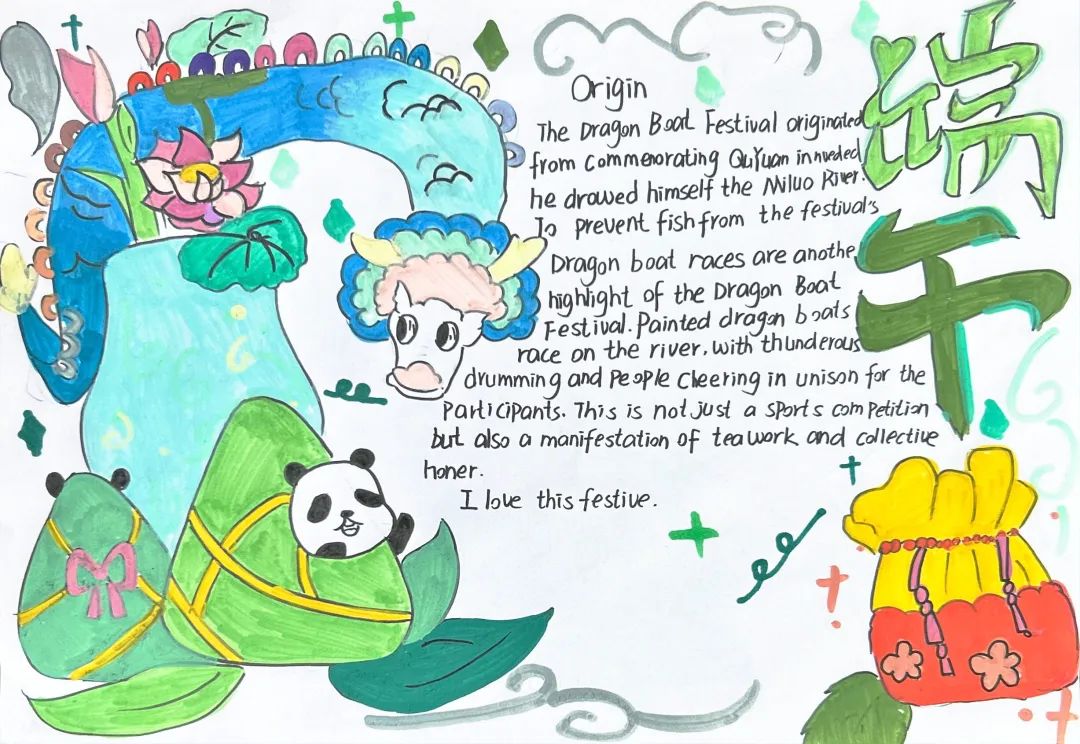 Origin
The Dragon Boat Festival originated
from commenorating QuYuan in
he drawed himself the Miluo River.
To prevent fish from the festival's
Dragon boat races are anothe
highlight of the Dragon Boat
Festival. Painted dragon boats
race on the river, with thunderous
drumming and People Cleering in unison for the
Participants. This is not just a sports com Petition
but also a manifestation of teawork and collective
honer.
I love this festive.
端
午